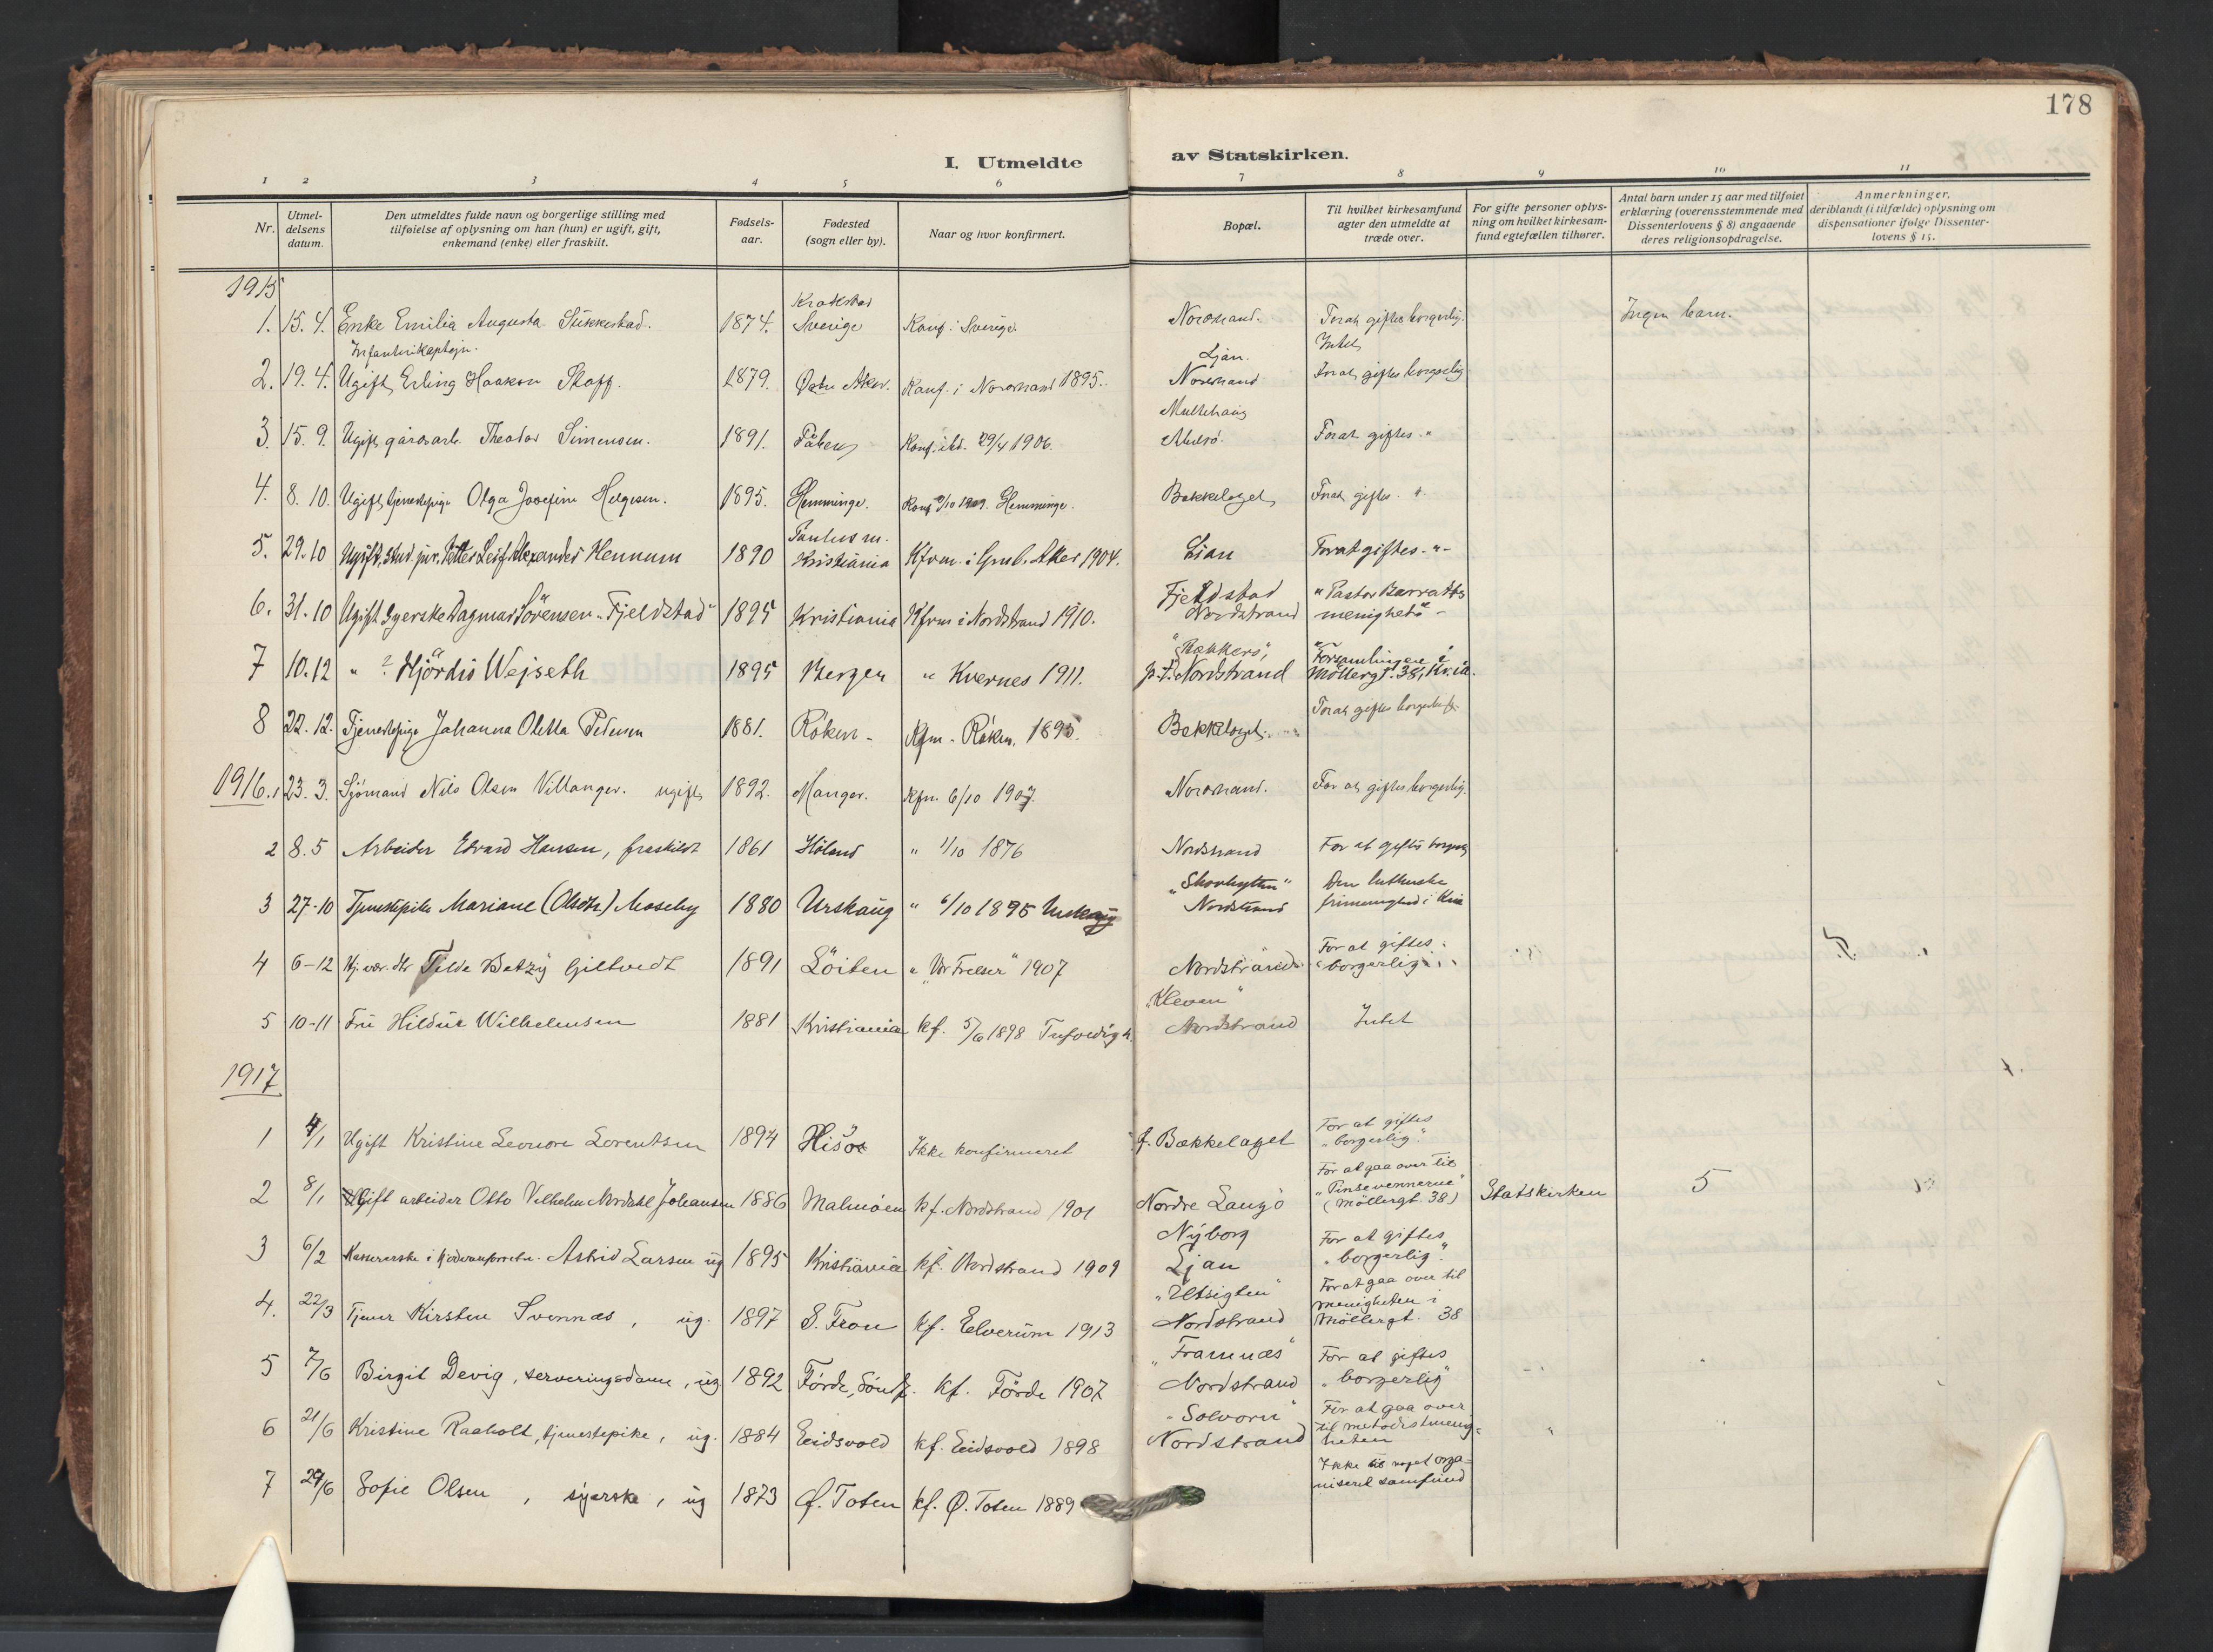 178
I. Utmeldte av Statskirken.
1 2 3 4 5 6 7 8 9 10 11
Nr.
Utmel-
delsens
datum.
Den utmeldtes fulde navn og borgerlige stilling med
tilføielse af oplysning om han (hun) er ugift, gift,
enkemand (enke) eller fraskilt.
Fødsels-
aar.
Fødested
(sogn eller by).
Naar og hvor konfirmert.
Bopæl.
Til hvilket kirkesamfund
agter den utmeldte at
træde over.
For gifte personer oplys-
ning om hvilket kirkesam-
fund egtefællen tilhører.
Antal barn under 15 aar med tilføiet
erklæring (overensstemmende med
Dissenterlovens § 8) angaaende
deres religionsopdragelse.
Anmerkninger,
deriblandt (i tilfælde) oplysning om
dispensationer ifølge Dissenter-
lovens § 15.
1915
Krakstad
1. 15. 4. Enke Emilia Augusta 1874. Sverige Konf. i Sverige. Nordstrand. For at giftes borgerlig. Ingen barn.
Infanterikaptejn. Ljan. Intet
2. 19. 4. Ugift, Erling Haakon 1879. Østre Aker. Konf. i Nordstrand 1895. Nordstrand For at giftes borgerlig
3. 15. 9. Ugift gårdsarb. Theodor Simensen. 1891. Konf. ibd. 29/4 1906. For at giftes "
4. 8. 10. Ugift, tjenestepige Olga Josefine Helgesen. 1895. Hemminge. Konf. 1909. Hemminge. Bekkelaget For at giftes. "
Paulus m.
5. 29. 10 Ugift, stud. jur. Leif Alexander Hennum 1890 Kristiania Kfrm. i Aker 1904. Lian For at giftes - " -
Fjeldstad "Pastor Barratts
6. 31. 10 Ugift Syerske Dagmar Sörensen "Fjeldstad" 1895 Kristiania Kfrm i Nordstrand 1910. Nordstrand menighet" -
"Forsamlingen i
7 10. 12 " ? Hjördis Wejseth 1895 Bergen " Kvernes 1911. p. t. Nordstrand Möllergt. 38, Kr.ia.
8 22. 12. Tjenestepige Johanna Oletta Pedersen 1881. Röken - Kfm - Röken. 1895. Bekkelaget. For at giftes
1916. 1 23. 3. Sjömand Nils Olsen Villanger. ugift, 1892. Manger. Kfm. 6/10 1907. Nordstrand. For at giftes borgerlig.
2 8. 5 Arbeider Edvard Hansen, fraskilt 1861 Höland " 1/10 1876 Nordstrand For at giftes borgerlig
"Skovhytten" Den lutherske
3 27-10 Tjenestepike Mariane (Olsdtr) Moseby 1880 Urskaug " 6/10 1895 Urskaug Nordstrand frimenighed i Kria
For at giftes
4 6-12 Hj. vær. dtr Tilda Betzy Giltvedt 1891 Löiten " "Vor Frelser" 1907 Nordstrand "borgerlig"
"Kleven"
5 10-11 Fru Hildur Wilhelmsen 1881 Kristiania kf. 5/6 1898 Nordstrand Intet
1917
For at giftes
1 4/1 Ugift Kristine Leonore Lorentsen 1894 Hisöe Ikke konfirmeret f. Bækkelaget "borgerlig".
For at gaa over til
"Pinsevennerne"
2 8/1 Gift arbeider Otto Vilhelm Nordahl Johansen 1886 Malmöen kf. Nordstrand 1901 Nordre Langö (Möllergt. 38) Statskirken 5
Nyborg For at giftes
3 6/2 Kassererske i Astrid Larsen ug 1895 Kristiania kf. Nordstrand 1909 Ljan "borgerlig".
"Utsigten" For at gaa over til
menigheten i
4. 22/3 Tjener Kirsten Svennæs, ug. 1897 S. Fron kf. Elverum 1913 Nordstrand Möllergt. 38
"Framnæs" For at giftes
5 7/6 Birgit Devig, serveringsdame, ug 1892 Förde, Söndf. kf. Förde 1907 Nordstrand "borgerlig"
"Solvorn" For at gaa over
til metodistmenig-
6 21/6 Kristine Raaholt, tjenestepike, ug. 1884 Eidsvold kf. Eidsvold 1898 Nordstrand heten
Ikke til noget orga-
7 29/6 Sofie Olsen, syerske, ug 1873 Ø. Toten kf. Ø. Toten 1889 niseret samfund